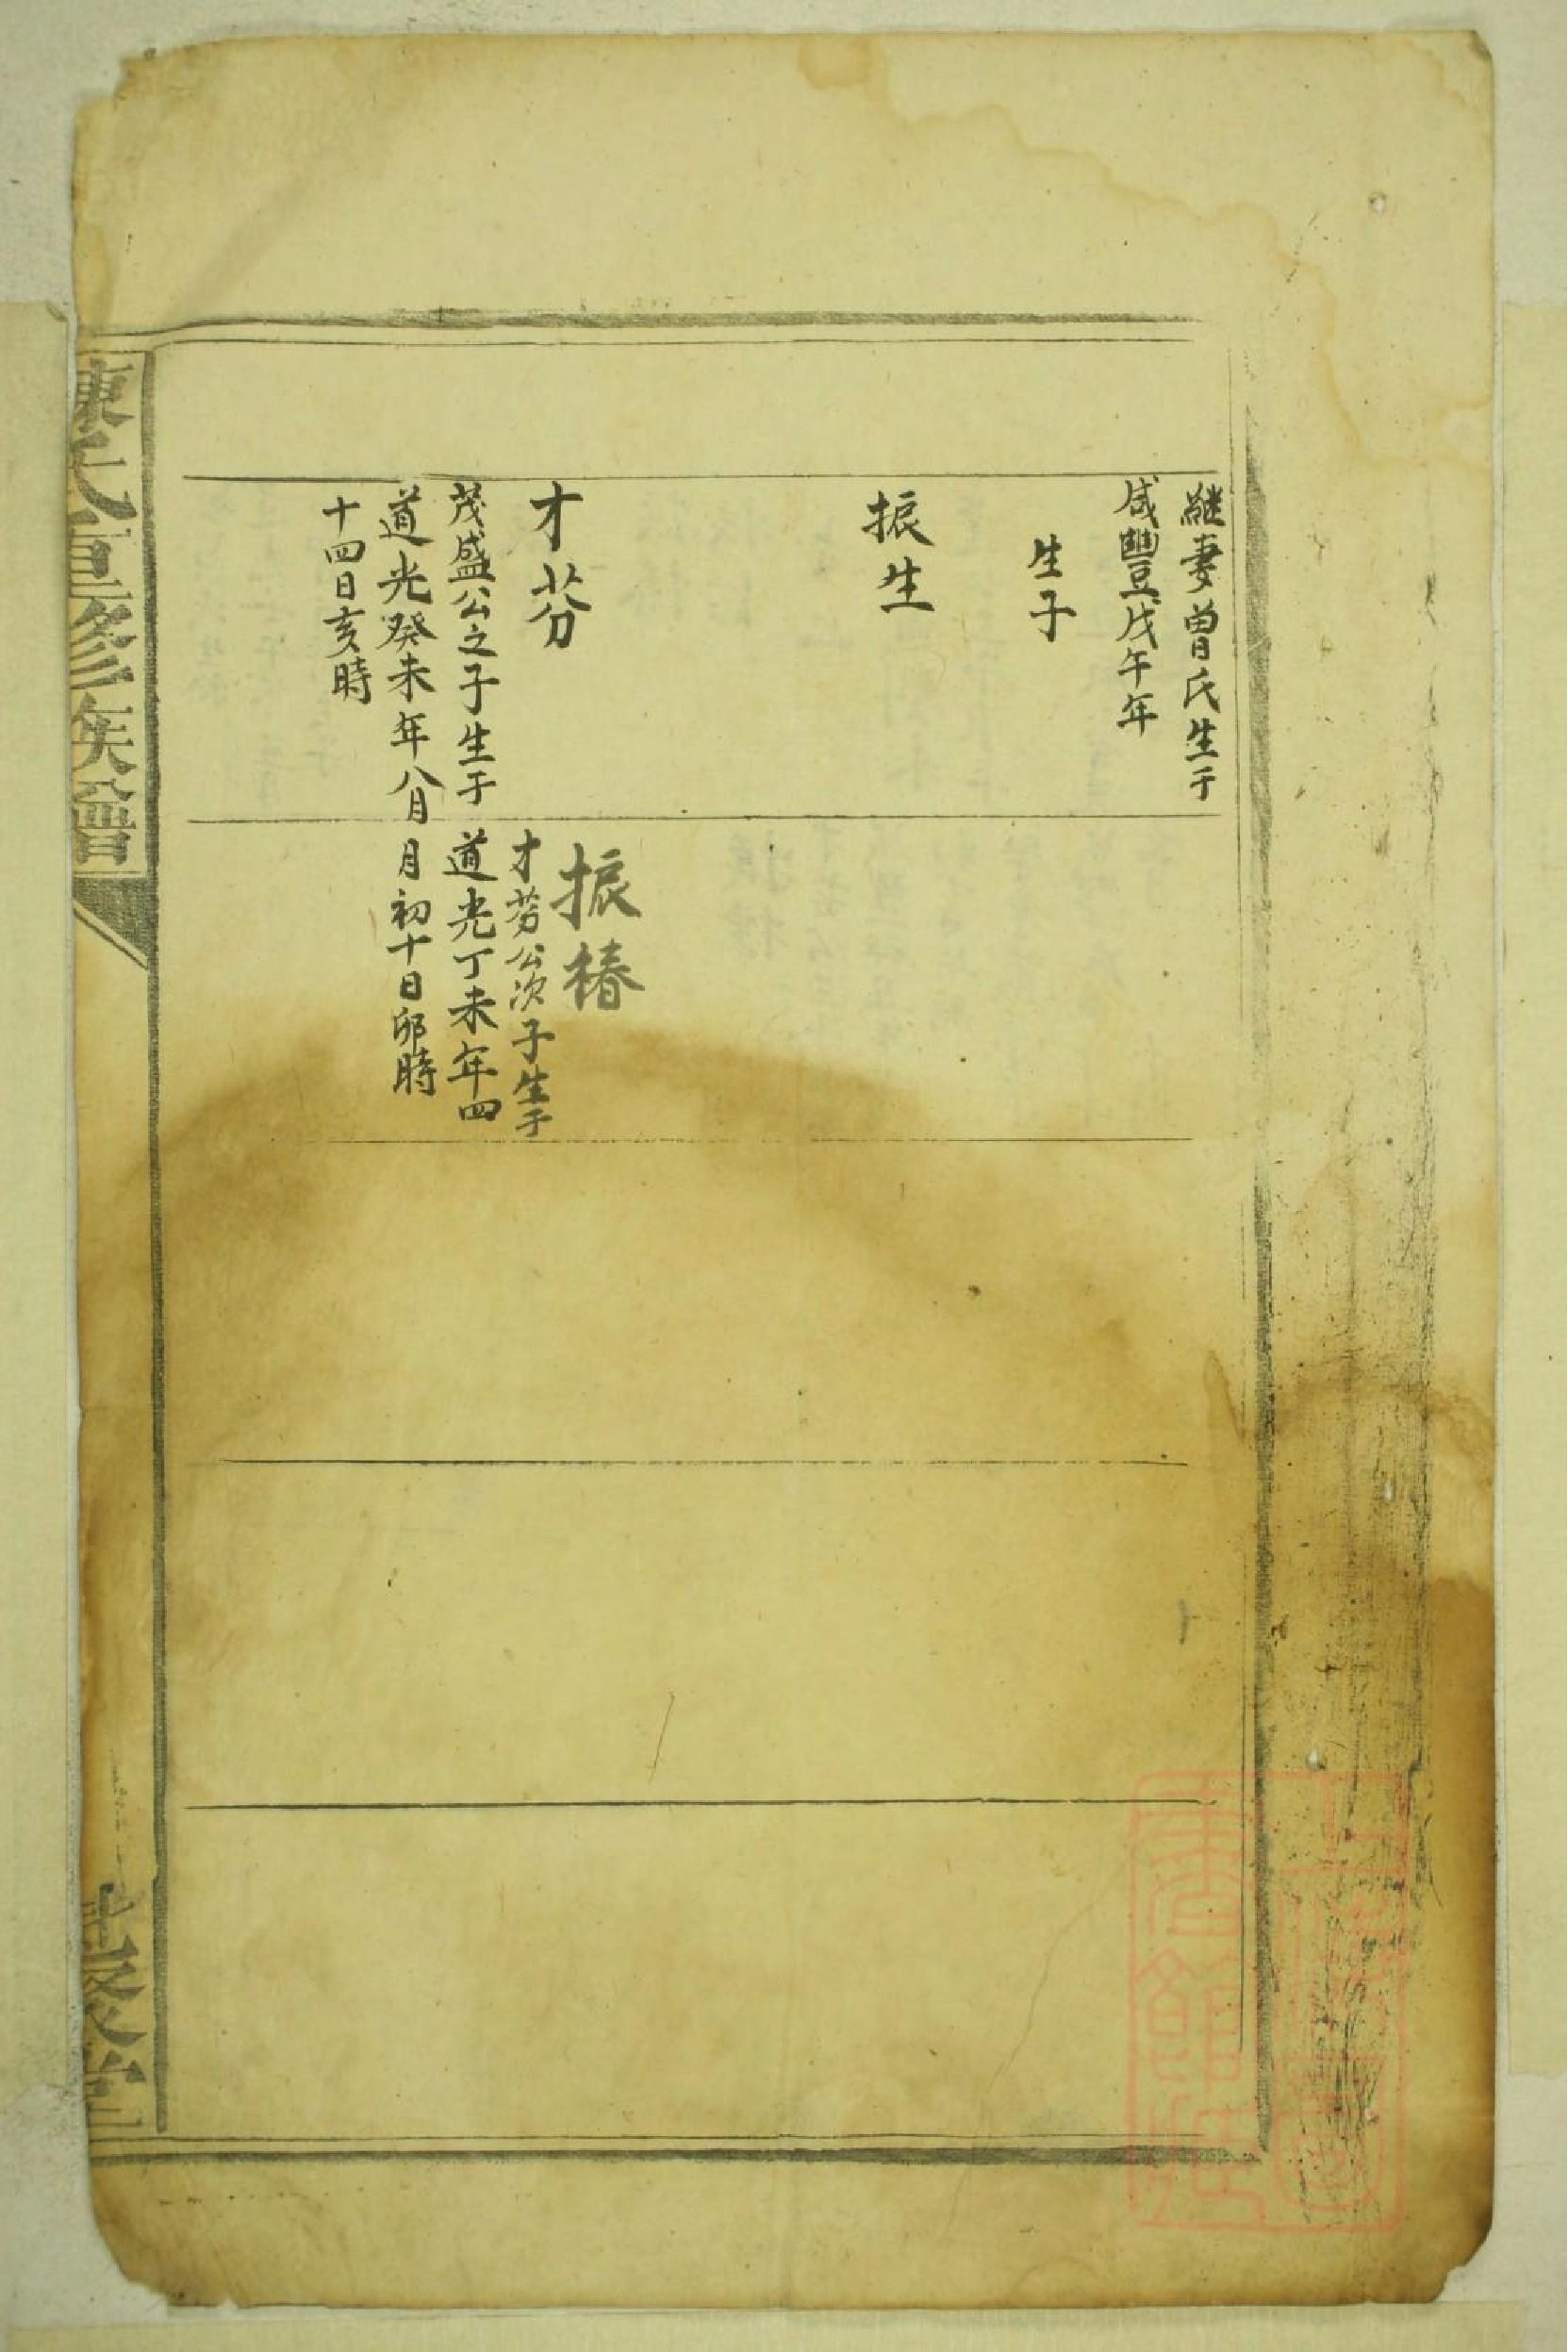 繼妻曾氏生于
咸豐戊午年
生子
振生
才芬
茂盛公之子生于
道光癸未年八月
十四日亥時
振椿
才芳公次子生于
道光丁未年四
月初十日卯時
陳氏重修族譜
聚堂